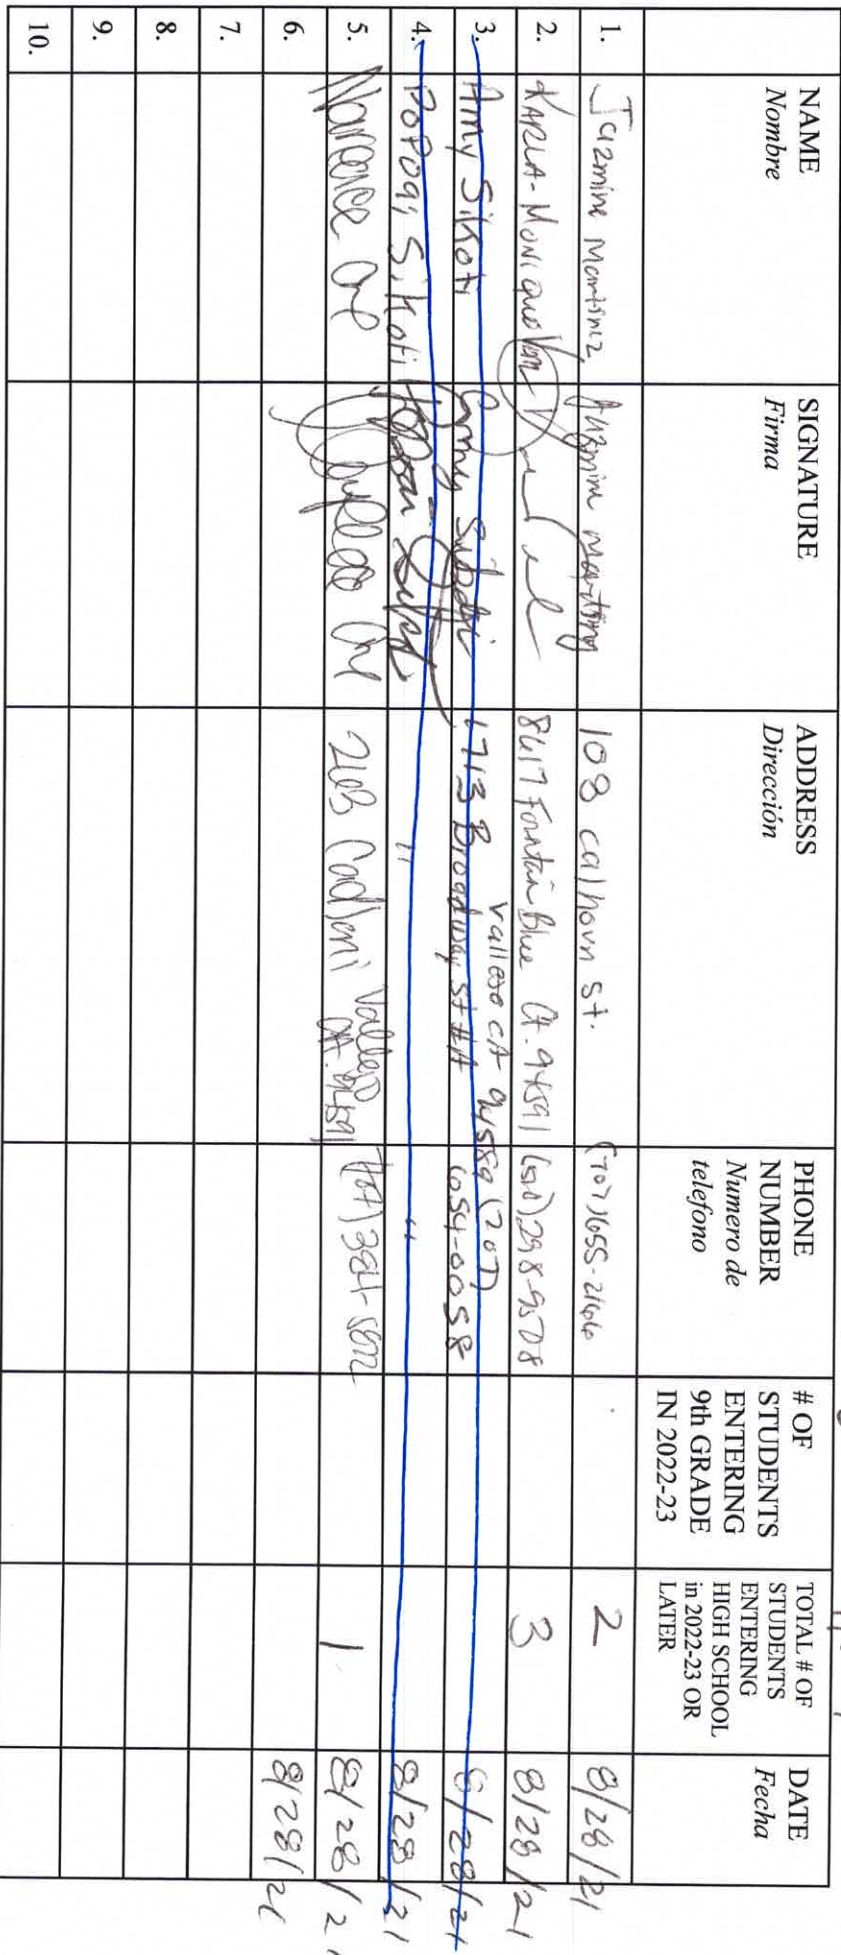 NAME
Nombre
SIGNATURE
Firma
ADDRESS
Dirección
PHONE
NUMBER
Numero de
telefono
# OF
STUDENTS
ENTERING
9th GRADE
IN 2022-23
TOTAL # OF
STUDENTS
ENTERING
HIGH SCHOOL
in 2022-23 OR
LATER
DATE
Fecha
1. Jazmine Martinez 108 calhoun st. (707)655-2166 2 8/28/21
2. KARLA-Monique 8417 Fontain Blue Ct. 94591 298-9508 3 8/28/21
3. Amy Sikoti Amy 1713 Broadway St #A
Vallejo CA 94589 (707)
654-0058 8/28/21
4. Popoai Sikoti " " 8/28/21
5. Vallejo
CA. 94591 1 8/28/21
6. 8/28/21
7.
8.
9.
10.